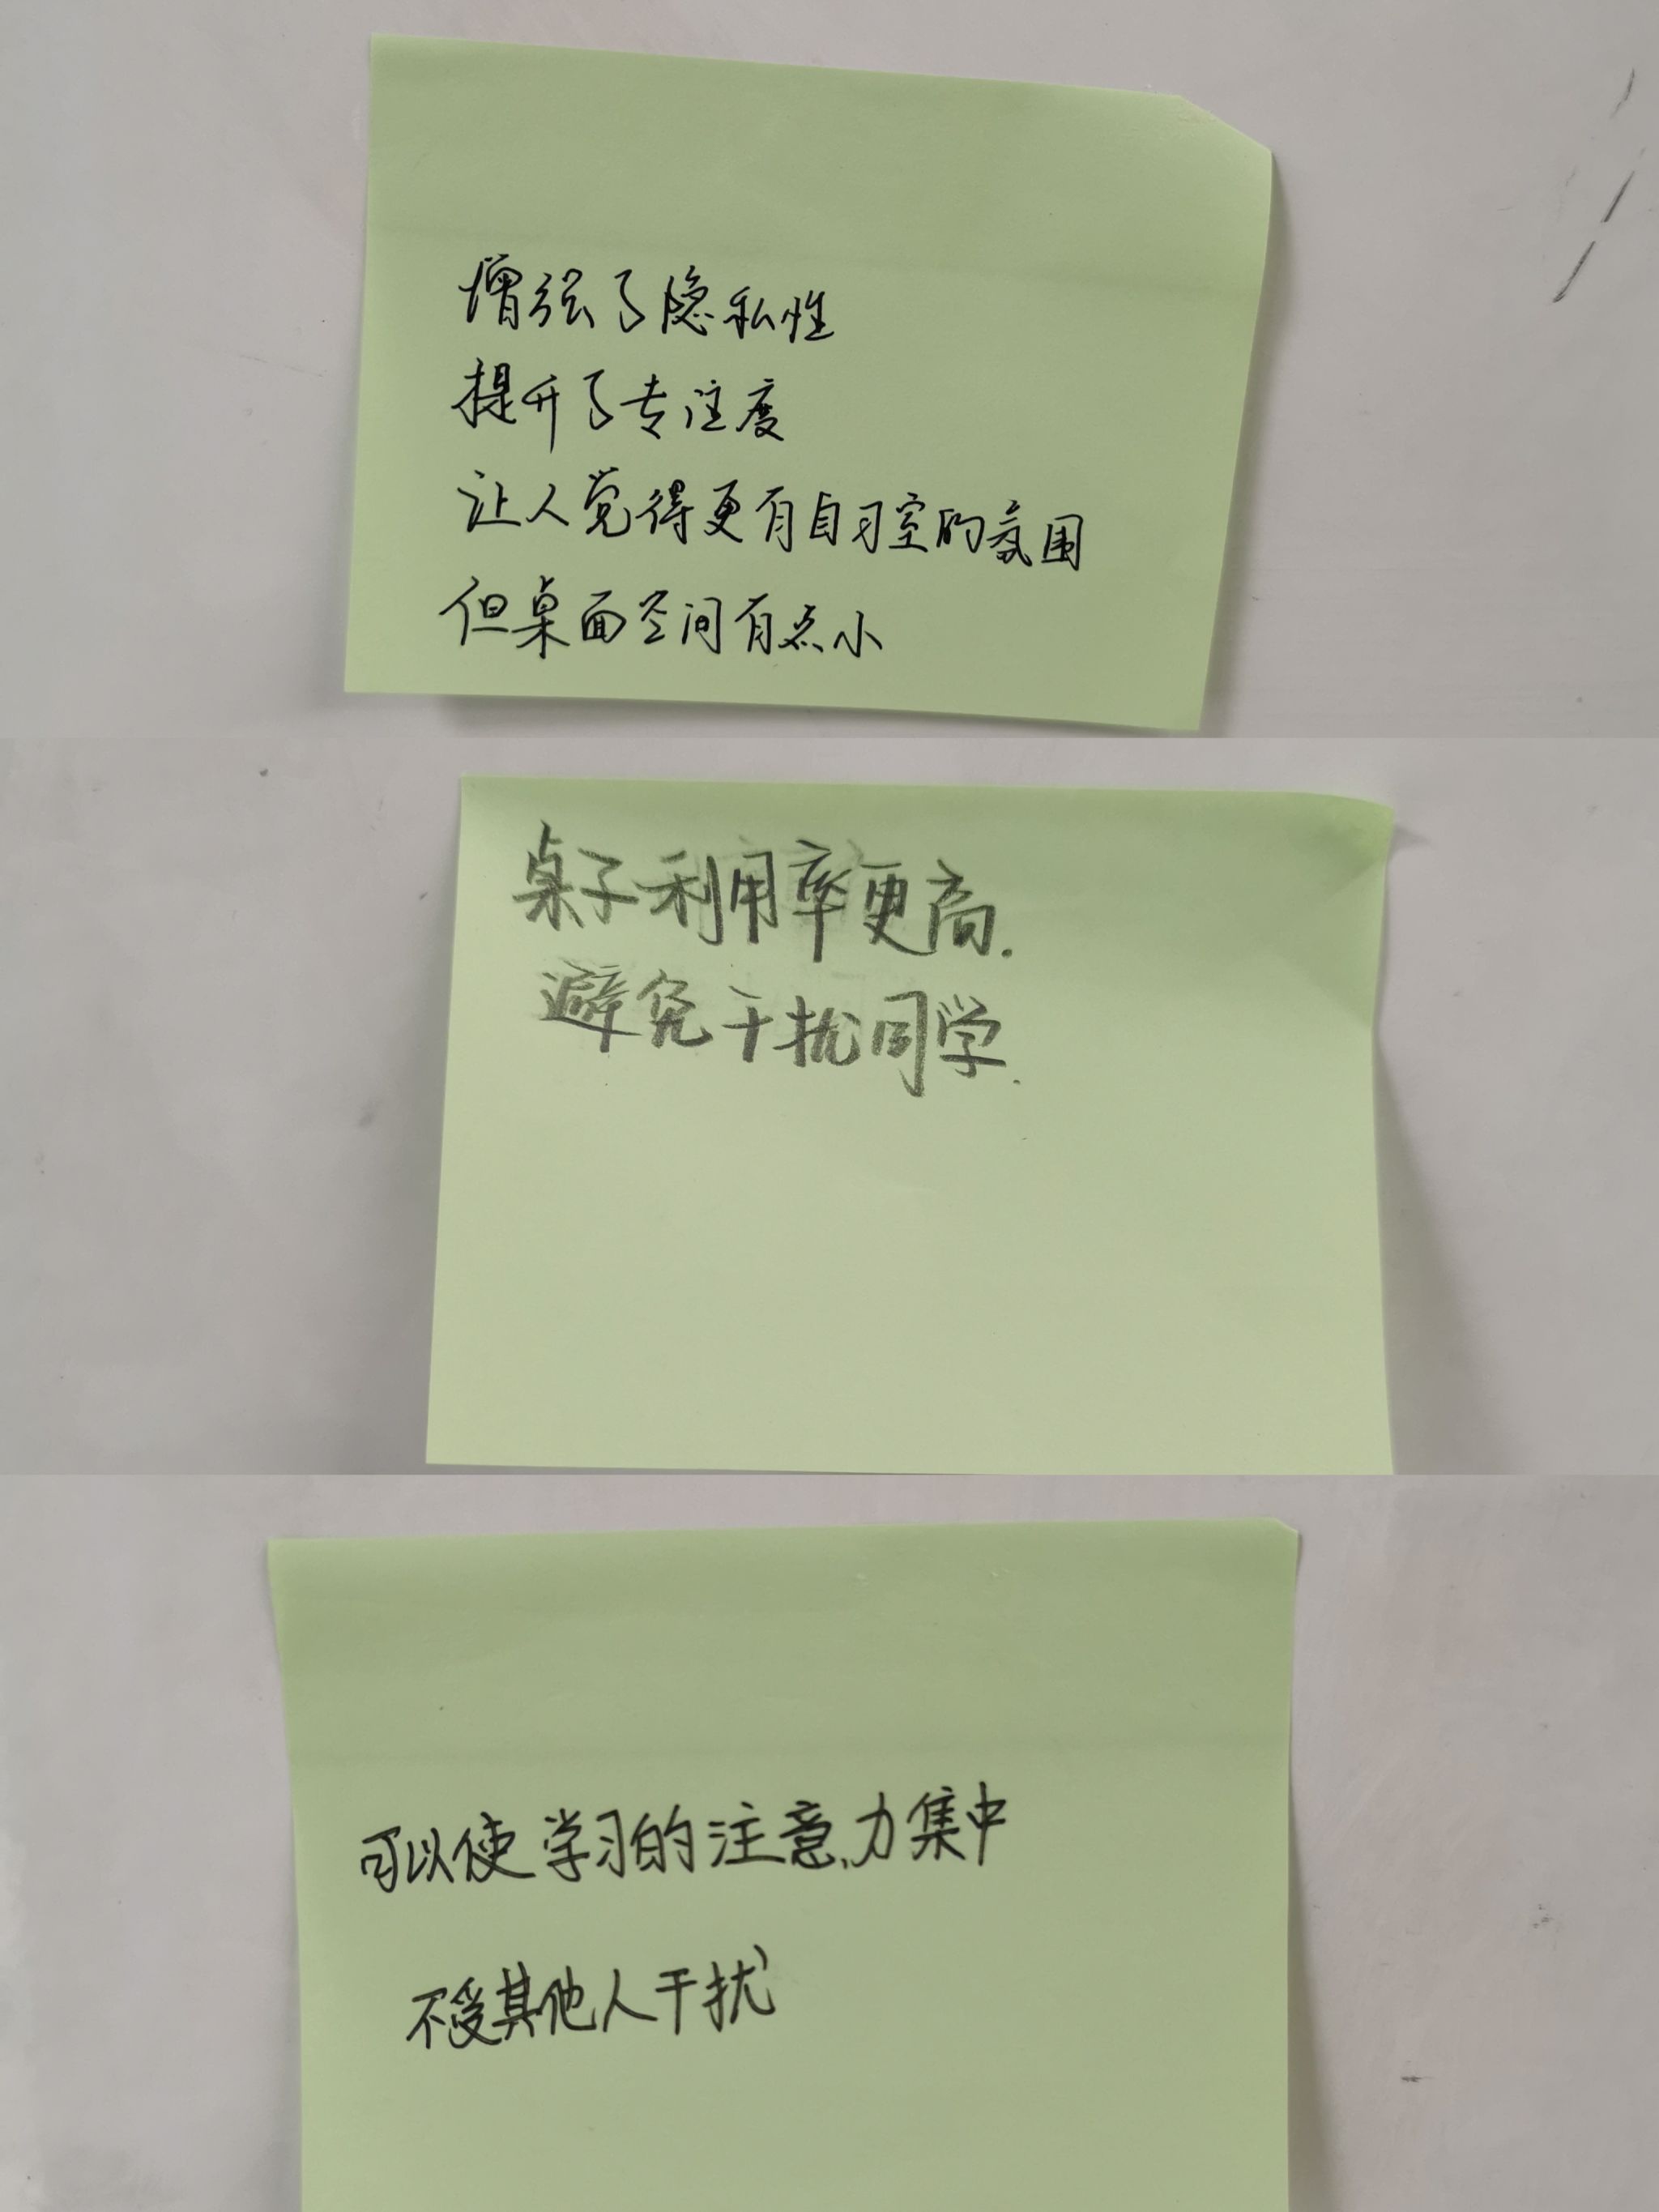 增强了隐私性
提升了专注度
让人觉得更有自习室的氛围
但桌面空间有点小
桌子利用率更高.
避免干扰同学.
可以使学习的注意力集中
不受其他人干扰